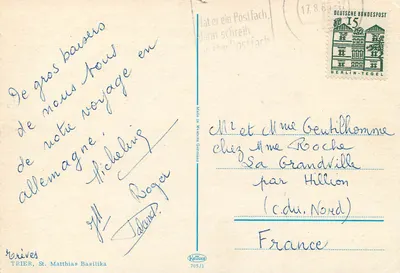 De gros baisers
de nous tous
de notre voyage en
allemagne.
Micheline
Roger
Trèves
TRIER, St. Matthias Basilika
Hat er ein Postfach,
dann schreib
Postfach
17.8.6
DEUTSCHE BUNDESPOST
15
BERLIN-TEGEL
Mr et Mme Gentilhomme
chez Mme Roche
La Grandville
par Hillion
(C. du. Nord)
France